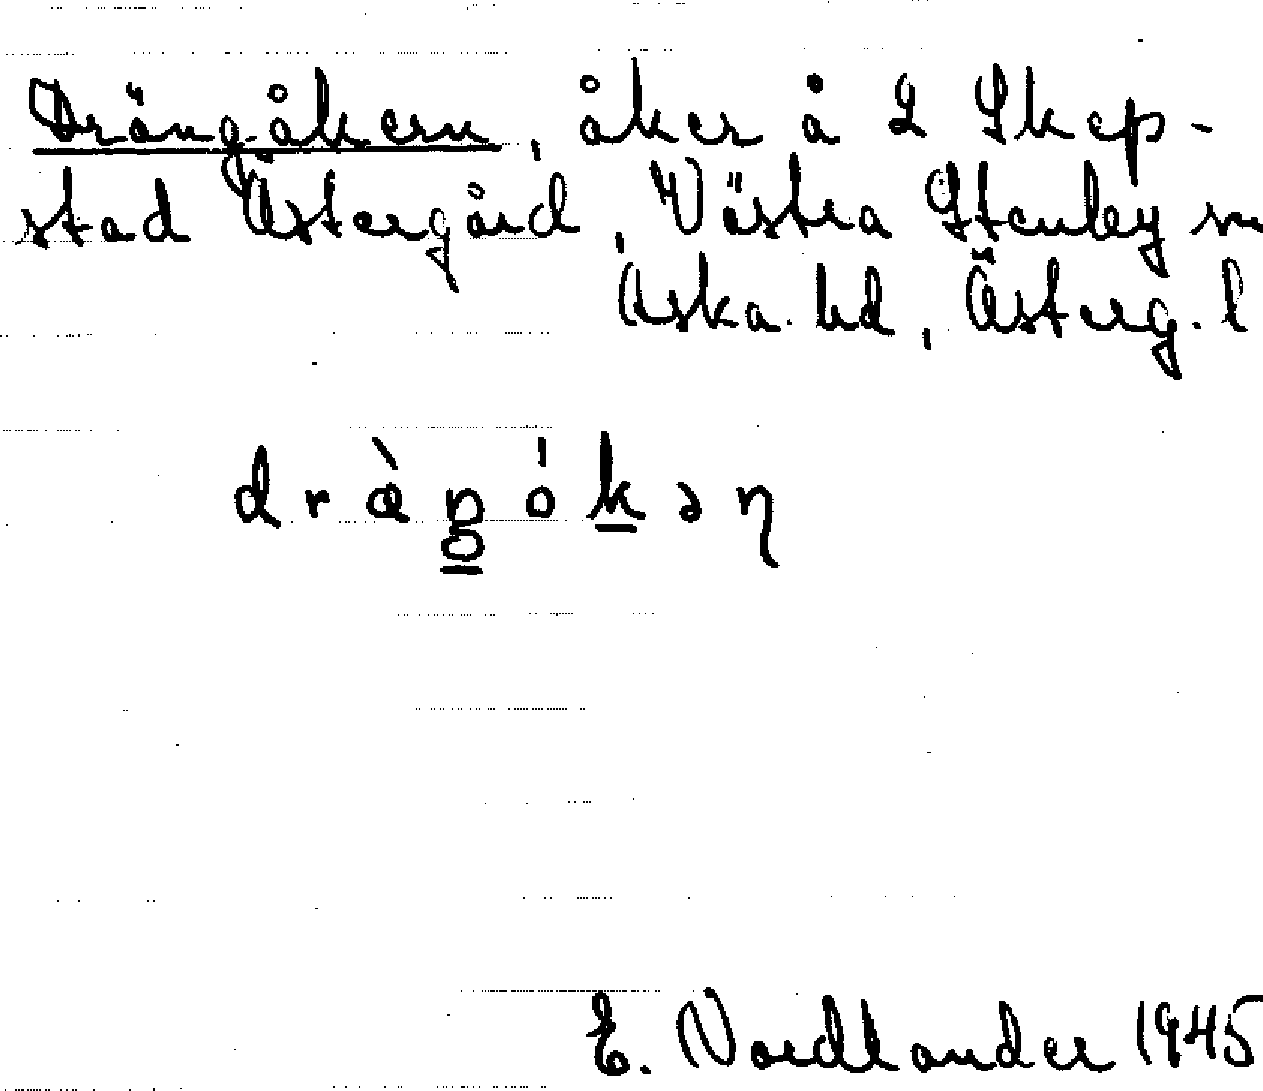 Drängåkern, åker å 2 Skep-
stad Östergård, Västra Stenby sn
Aska hd, Österg. l
dràŋókəη
E. Nordlander 1945